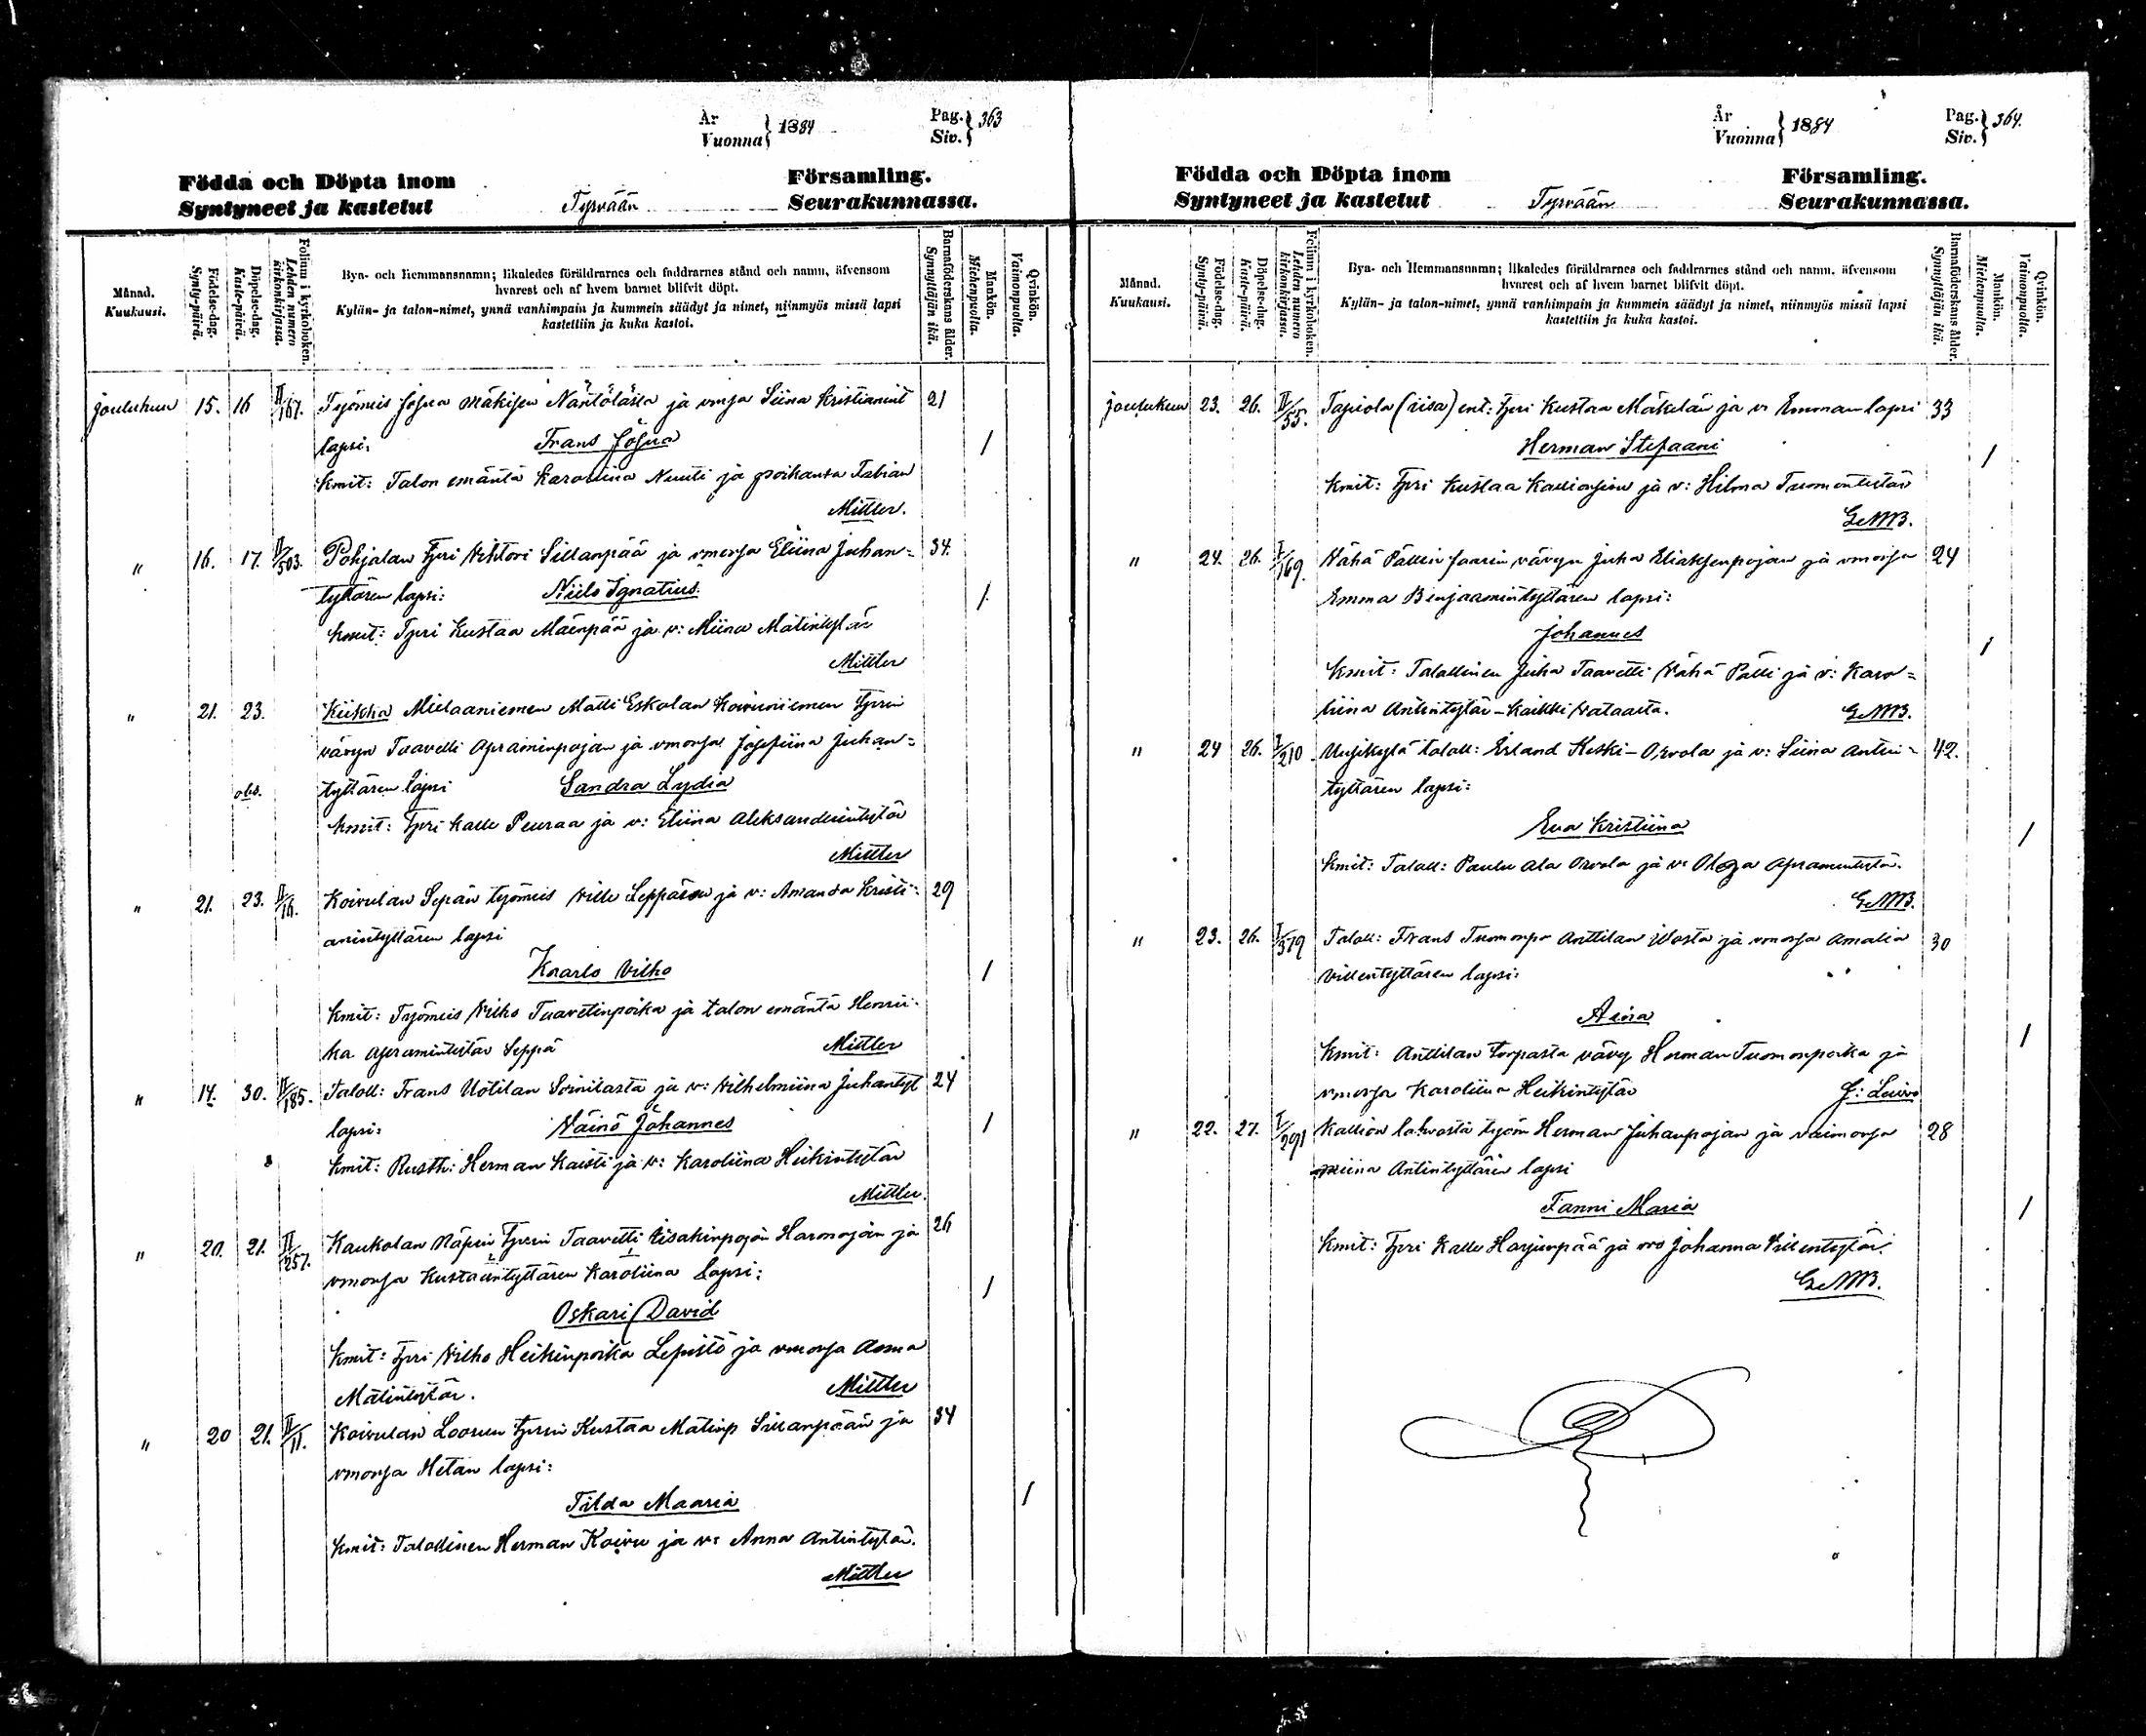 År
Vuonna } 1884
Pag.
Siv. } 363
Födda och Döpta inom
Syntyneet ja kastetut
Tyrvään
Församling.
Seurakunnassa.
Månad.
Kuukausi.
Födelse-dag.
Synty-päivä.
Döpelse-dag.
Kaste-päivä.
Folium i kyrkoboken.
Lehden numero
kirkonkirjassa.
Bya- och Hemmansnamn; likaledes föräldrarnes och faddrarnes stånd och namn, äfvensom
hvarest och af hvem barnet blifvit döpt.
Kylän- ja talon-nimet, ynnä vanhimpain ja kummein säädyt ja nimet, niinmyös missä lapsi
kastettiin ja kuka kastoi.
Barnaföderskans ålder.
Synnyttäjän ikä.
Mankön.
Miehenpuolta.
Qvinkön.
Vaimonpuolta.
Joulukuu 15. 16 II/167. Työmies Josua Mäkisen Näntölästä ja vmsa Liina Kristianint 21
lapsi: Frans Josua 1
Kmit: Talon emäntä Karoliina Nuuti ja poikansa Fabian
Mittler.
" 16. 17. II/503. Pohjalan Tpri Vihtori Sillanpää ja vmonsa Eliina Juhan= 34.
tyttären lapsi: Niilo Ignatius. 1
Kmit: Tpri Kustaa Mäenpää ja v: Miina Matintytär
Mittler
" 21. 23. Kiikka Mielaaniemen Matti Eskolan Koivuniemen tprin
vävyn Taavetti Apraminpojan ja vmonsa Josefiina Juhan=
obs. tyttären lapsi Sandra Lydia
Kmit: Tpri Kalle Peuraa ja v: Eliina Aleksanderintytär
Mittler
" 21. 23. II/16. Koivulan Sepän työmies Ville Seppäsen ja v: Amanda Kristi= 29
anintyttären lapsi
Kaarlo Vilho 1
Kmit: Työmies Vilho Taavetinpoika ja talon emäntä Henrii-
ka Apramintytär Seppä Mittler
" 14. 30. II/185. Taloll: Frans Uotilan Soinilasta ja v: Vilhelmiina Juhantyt 24
lapsi: Väinö Johannes 1
Kmit: Rusth: Herman Kaisti ja v: Karoliina Heikintytär
Mittler.
" 20. 21. II/257. Kaukolan Näpin tprin Taavetti Iisakinpojan Harmojan ja 26
vmonsa Kustaantyttären Karoliina lapsi: 1
Oskari David
Kmit: Tpri Vilho Heikinpoika Lepistö ja vmonsa Anna
Matintytär. Mittler
" 20 21. II/11. Koivulan Loosun tprin Kustaa Matinp Sillanpään ja 34
vmonsa Hetan lapsi:
Tilda Maaria 1
Kmit: Talollinen Herman Koivu ja v: Anna Antintytär.
Mittler
År
Vuonna } 1884
Pag.
Siv. } 364.
Födda och Döpta inom
Syntyneet ja kastetut
Tyrvään
Församling.
Seurakunnassa.
Månad.
Kuukausi.
Födelse-dag.
Synty-päivä.
Döpelse-dag.
Kaste-päivä.
Folium i kyrkoboken.
Lehden numero
kirkonkirjassa.
Bya- och Hemmansnamn; likaledes föräldrarnes och faddrarnes stånd och namn, äfvensom
hvarest och af hvem barnet blifvit döpt.
Kylän- ja talon-nimet, ynnä vanhimpain ja kummein säädyt ja nimet, niinmyös missä lapsi
kastettiin ja kuka kastoi.
Barnaföderskans ålder.
Synnyttäjän ikä.
Mankön.
Miehenpuolta.
Qvinkön.
Vaimonpuolta.
Joulukuu 23. 26. II/55. Tapiola (iisa) ent: Tpri Kustaa Mäkelän ja v: Emman lapsi 33
Herman Stefaani 1
Kmit: Tpri Kustaa Kallionsivu ja v: Hilma Tuomentytär
" 24. 26. I/169. Vähä Pällin Jaarin vävyn Juha Eliaksenpojan ja vmonsa 24
Emma Benjaamintyttären lapsi:
Johannes 1
Kmit: Talollinen Juha Taavetti Vähä Pälli ja v: Karo=
liina Antintytär - Kaikki Vataasta.
" 24 26. I/210 Uusikylä taloll: Erland Keski-Orvola ja v: Liina Antin- 42.
tyttären lapsi:
Eva Kristiina 1
Kmit: Taloll: Paulu Ala Orvola ja v: Olga Apramintytär.
" 23. 26. I/379 Taloll: Frans Tuomonpo Anttilan Illosta ja vmonsa Amalia 30
Villentyttären lapsi:
Aina 1
Kmit: Anttilan torpasta vävy Herman Tuomonpoika ja
vmonsa Karoliina Heikintytär J: Leivo
" 22. 27. I/291 Kallion lahvosta työm Herman Juhanpojan ja vaimonsa 28
Miina Antintyttären lapsi
Fanni Maria 1
Kmit: Tpri Kalle Harjunpää ja vo Johanna Villentytär.